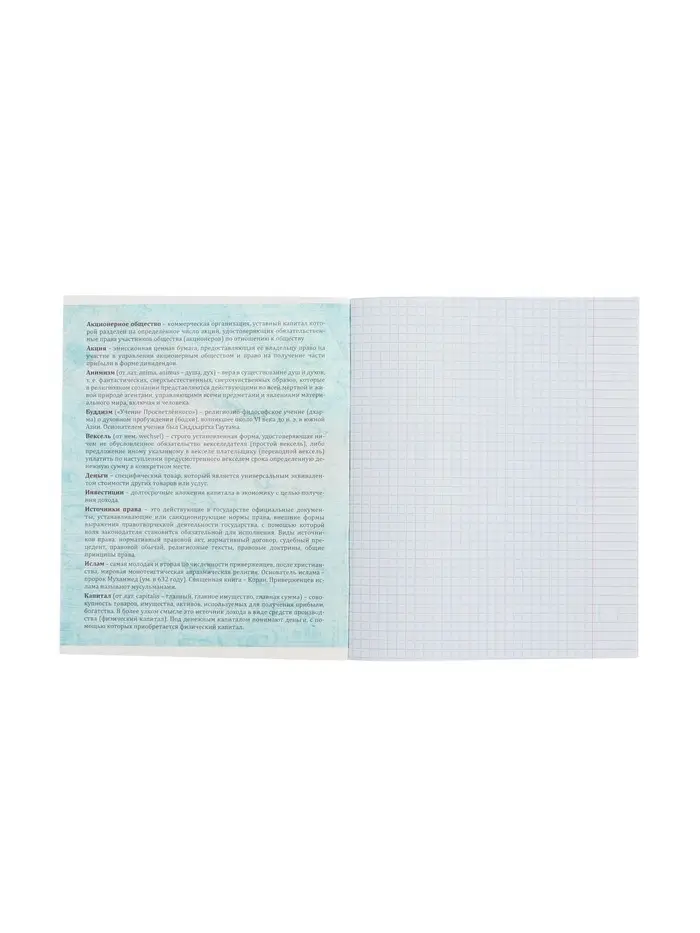 Акционерное общество – коммерческая организация, уставный капитал кото-
рой разделен на определенное число акций, удостоверяющих обязательствен-
ные права участников общества (акционеров) по отношению к обществу
Акция – эмиссионная ценная бумага, предоставляющая её владельцу право на
участие в управлении акционерным обществом и право на получение части
прибыли в форме дивидендов.
Анимизм (от лат. anima, animus – душа, дух) – вера в существование душ и духов,
т. е. фантастических, сверхъестественных, сверхчувственных образов, которые
в религиозном сознании представляются действующими во всей мёртвой и жи-
вой природе агентами, управляющими всеми предметами и явлениями матери-
ального мира, включая и человека.
Буддизм («Учение Просветлённого») – религиозно-философское учение (дхар-
ма) о духовном пробуждении (бодхи), возникшее около VI века до н. э. в южной
Азии. Основателем учения был Сиддхартха Гаутама.
Вексель (от нем. wechsel) – строго установленная форма, удостоверяющая ни-
чем не обусловленное обязательство векселедателя (простой вексель), либо
предложение иному указанному в векселе плательщику (переводной вексель)
уплатить по наступлении предусмотренного векселем срока определенную де-
нежную сумму в конкретном месте.
Деньги – специфический товар, который является универсальным эквивален-
том стоимости других товаров или услуг.
Инвестиции – долгосрочные вложения капитала в экономику с целью получе-
ния дохода.
Источники права – это действующие в государстве официальные докумен-
ты, устанавливающие или санкционирующие нормы права, внешние формы
выражения правотворческой деятельности государства, с помощью которой
воля законодателя становится обязательной для исполнения. Виды источни-
ков права: нормативный правовой акт, нормативный договор, судебный пре-
цедент, правовой обычай, религиозные тексты, правовые доктрины, общие
принципы права.
Ислам – самая молодая и вторая по численности приверженцев, после христиан-
ства, мировая монотеистическая авраамическая религия. Основатель ислама –
пророк Мухаммед (ум. в 632 году). Священная книга – Коран. Приверженцев ис-
лама называют мусульманами.
Капитал (от лат. capitalis – главный, главное имущество, главная сумма) – сово-
купность товаров, имущества, активов, используемых для получения прибыли,
богатства. В более узком смысле это источник дохода в виде средств производ-
ства (физический капитал). Под денежным капиталом понимают деньги, с по-
мощью которых приобретается физический капитал.